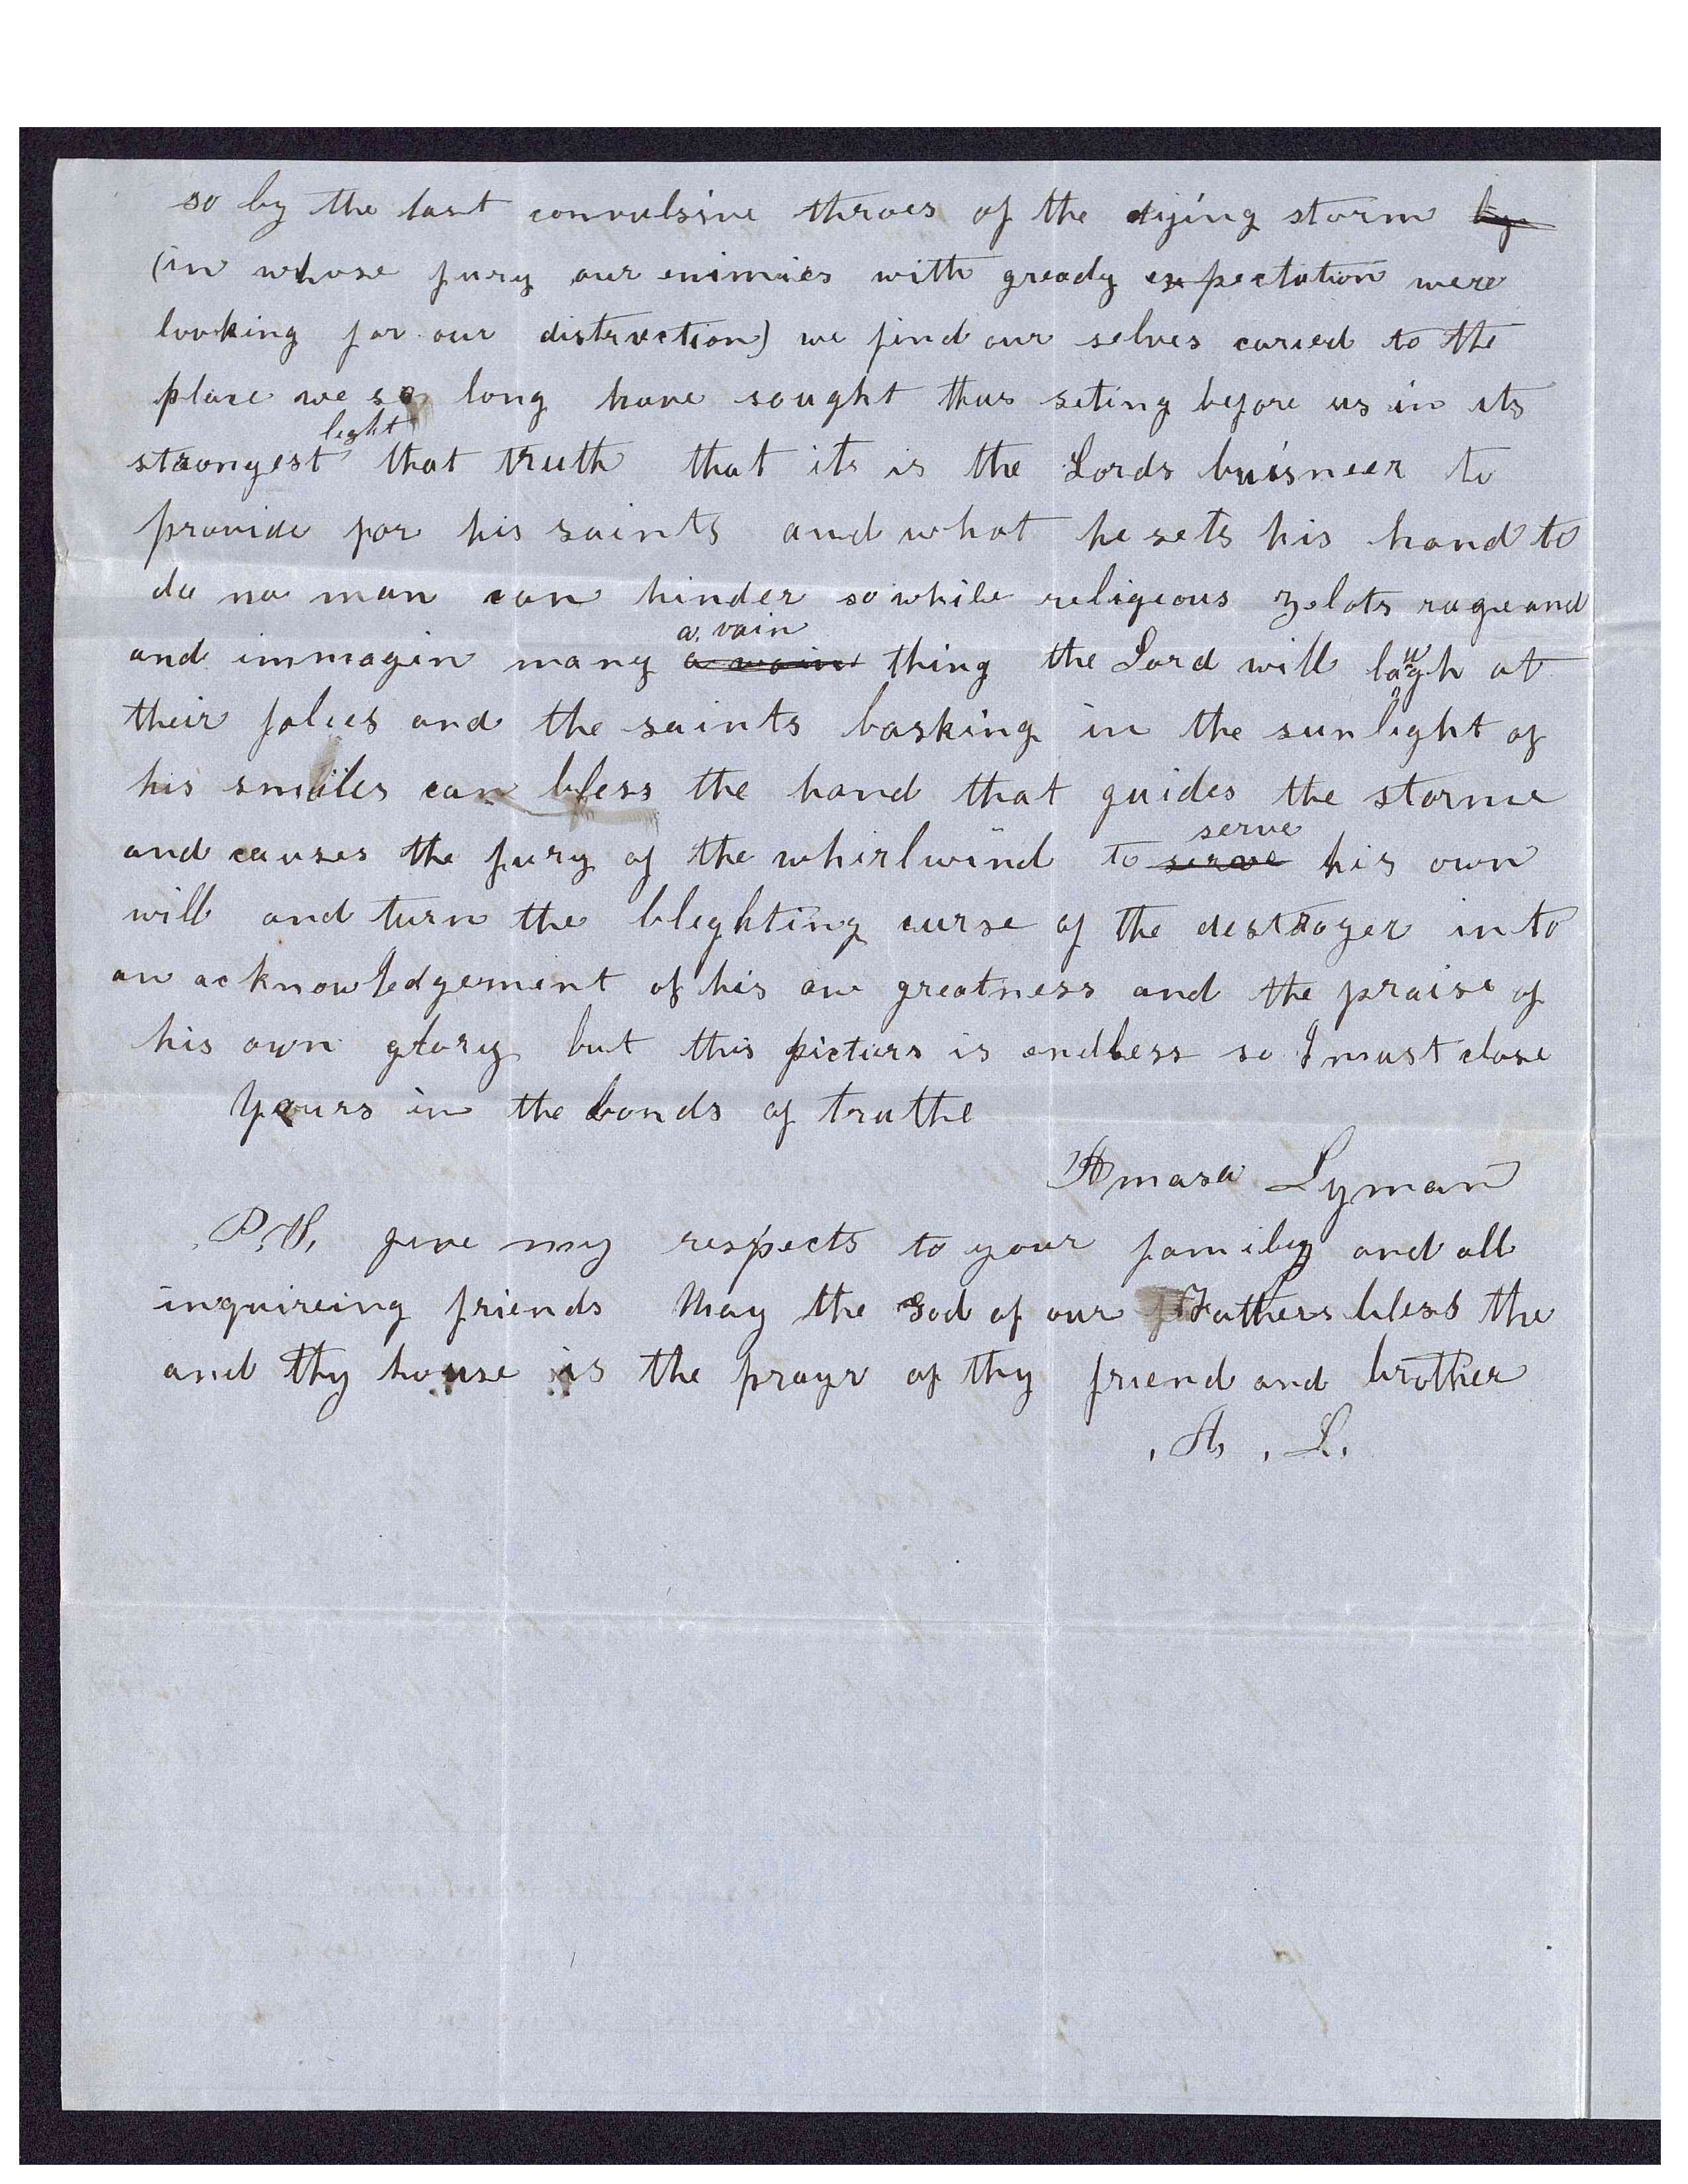 so by the last convulsive throes of the dying storm by
(in whose fury our enimies with gready expectation were
looking for our distruction) we find our selves caried to the
place we so long have sought thus seting before us in its
light
strongest that truth that its is the Lords buisness to
provide for his saints and what he sets his hand to
do no man can hinder so while religious zelots rage and
a vain
and immagin many a vain thing the Lord will laugh at
their folies and the saints basking in the sun light of
his smiles can bless the hand that guides the storme
serve
and causes the fury of the whirlwind to serve his own
will and turn the blighting curse of the destroyer into
an acknowledgement of his own greatness and the praise of
his own glory but this picturs is endless so I must close
Yours in the bonds of truthe
Amasa Lyman
P.S. give my respects to your family and all
inquireing friends May the God of our Fathers bless the
and thy house is the prayr of thy friend and brother
A. L.